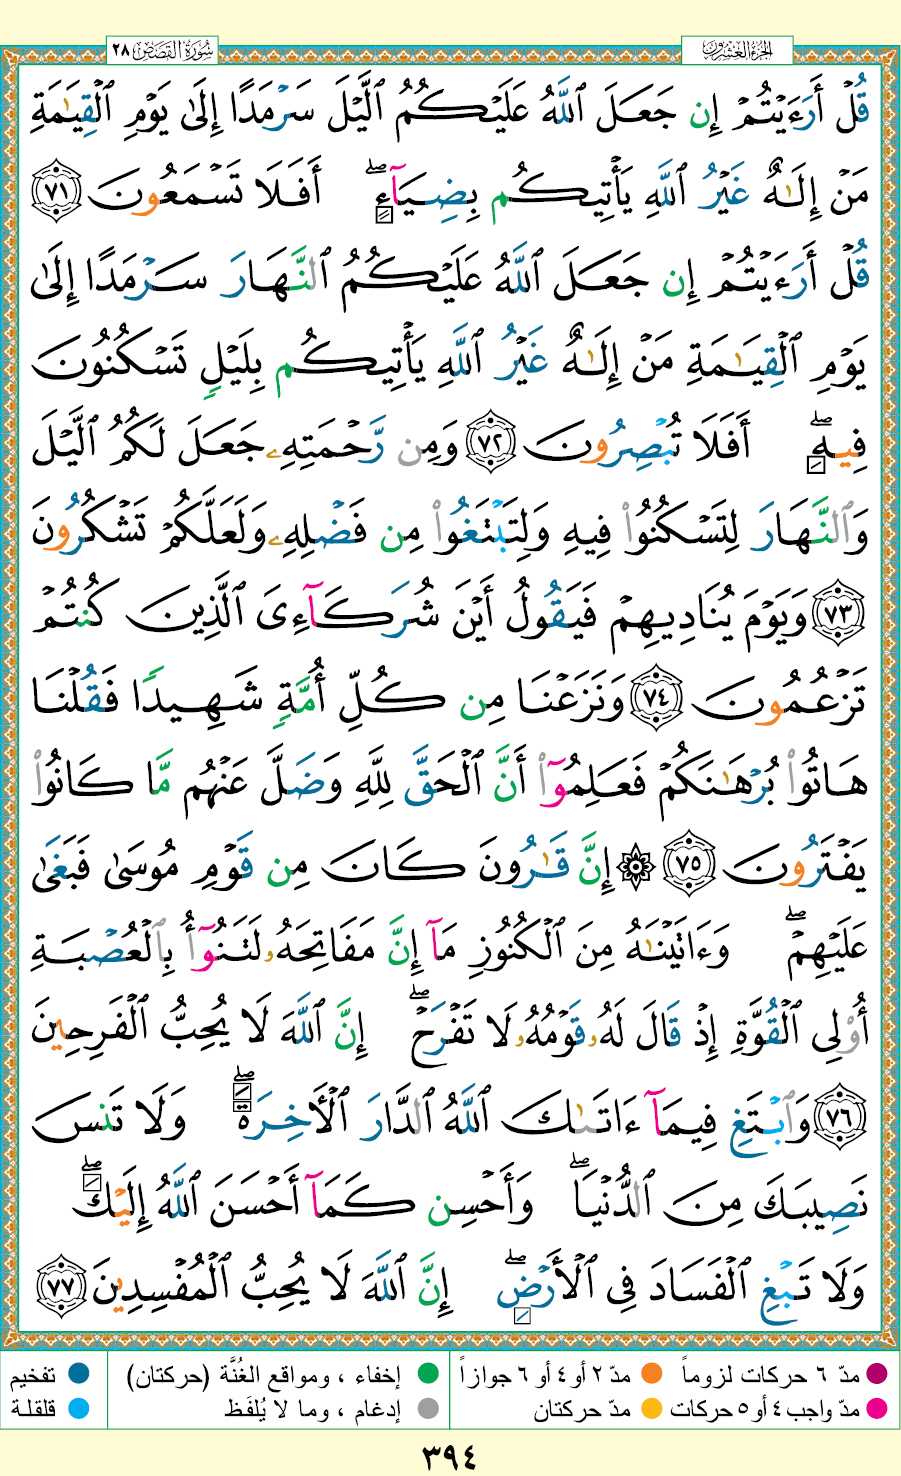 سُورَةُ القَصَصِ ٢٨
الجُزءُ العِشْرُونَ
قُلۡ أَرَءَيۡتُمۡ إِن جَعَلَ ٱللَّهُ عَلَيۡكُمُ ٱلَّيۡلَ سَرۡمَدًا إِلَىٰ يَوۡمِ ٱلۡقِيَٰمَةِ
مَنۡ إِلَٰهٌ غَيۡرُ ٱللَّهِ يَأۡتِيكُم بِضِيَآءٍۖ أَفَلَا تَسۡمَعُونَ ٧١
قُلۡ أَرَءَيۡتُمۡ إِن جَعَلَ ٱللَّهُ عَلَيۡكُمُ ٱلنَّهَارَ سَرۡمَدًا إِلَىٰ
يَوۡمِ ٱلۡقِيَٰمَةِ مَنۡ إِلَٰهٌ غَيۡرُ ٱللَّهِ يَأۡتِيكُم بِلَيۡلٖ تَسۡكُنُونَ
فِيهِۖ أَفَلَا تُبۡصِرُونَ ٧٢ وَمِن رَّحۡمَتِهِۦ جَعَلَ لَكُمُ ٱلَّيۡلَ
وَٱلنَّهَارَ لِتَسۡكُنُواْ فِيهِ وَلِتَبۡتَغُواْ مِن فَضۡلِهِۦ وَلَعَلَّكُمۡ تَشۡكُرُونَ
٧٣ وَيَوۡمَ يُنَادِيهِمۡ فَيَقُولُ أَيۡنَ شُرَكَآءِيَ ٱلَّذِينَ كُنتُمۡ
تَزۡعُمُونَ ٧٤ وَنَزَعۡنَا مِن كُلِّ أُمَّةٖ شَهِيدٗا فَقُلۡنَا
هَاتُواْ بُرۡهَٰنَكُمۡ فَعَلِمُوٓاْ أَنَّ ٱلۡحَقَّ لِلَّهِ وَضَلَّ عَنۡهُم مَّا كَانُواْ
يَفۡتَرُونَ ٧٥ ۞ إِنَّ قَٰرُونَ كَانَ مِن قَوۡمِ مُوسَىٰ فَبَغَىٰ
عَلَيۡهِمۡۖ وَءَاتَيۡنَٰهُ مِنَ ٱلۡكُنُوزِ مَآ إِنَّ مَفَاتِحَهُۥ لَتَنُوٓأُ بِٱلۡعُصۡبَةِ
أُوْلِي ٱلۡقُوَّةِ إِذۡ قَالَ لَهُۥ قَوۡمُهُۥ لَا تَفۡرَحۡۖ إِنَّ ٱللَّهَ لَا يُحِبُّ ٱلۡفَرِحِينَ
٧٦ وَٱبۡتَغِ فِيمَآ ءَاتَىٰكَ ٱللَّهُ ٱلدَّارَ ٱلۡأٓخِرَةَۖ وَلَا تَنسَ
نَصِيبَكَ مِنَ ٱلدُّنۡيَاۖ وَأَحۡسِن كَمَآ أَحۡسَنَ ٱللَّهُ إِلَيۡكَۖ
وَلَا تَبۡغِ ٱلۡفَسَادَ فِي ٱلۡأَرۡضِۖ إِنَّ ٱللَّهَ لَا يُحِبُّ ٱلۡمُفۡسِدِينَ ٧٧
مدّ ٦ حركات لزوماً
مدّ ٢ أو ٤ أو ٦ جوازاً
إخفاء ، ومواقع الغُنَّة (حركتان)
تفخيم
مدّ واجب ٤ أو ٥ حركات
مدّ حركتان
إدغام ، وما لا يُلفَظ
قلقلة
٣٩٤